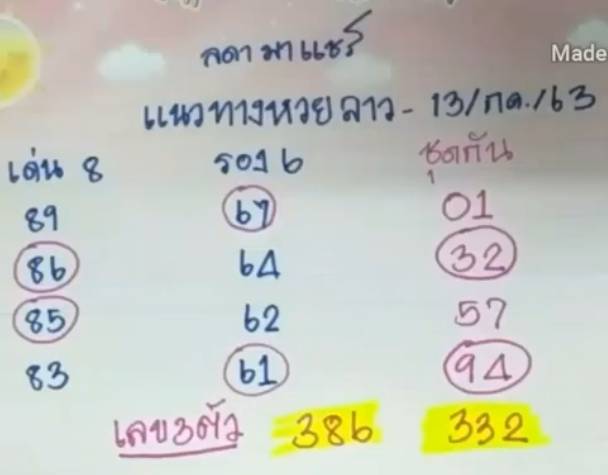 ลดา มาแชร์
Made
แนวทางหวยลาว - 13/กค./63
เด่น 8 รอง 6 ชุดกัน
89 67 01
86 64 32
85 62 57
83 61 94
เลข3ตัว 386 332